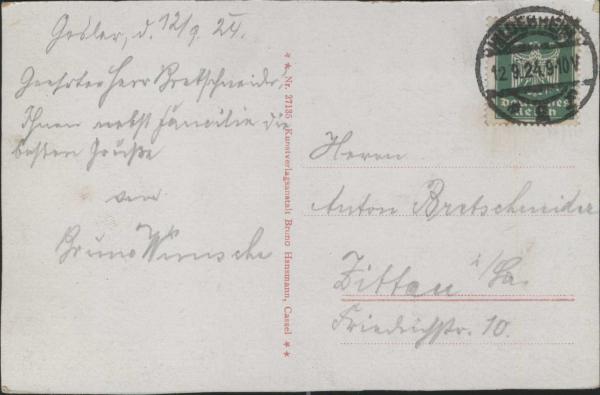 Goslar, d. 12/9. 24.
Geehrter Herr Bretschneider,
Ihnen nebst Familie die
besten Grüße
von
Bruno Wünsche
* * Nr. 27135 Kunstverlagsanstalt Bruno Hansmann, Cassel * *
HILDESHEIM
12.9.24.9-10V
Deutsches
Reich
Herrn
Anton Bretschneider
Zittau i/Sa.
Friedrichstr. 10.